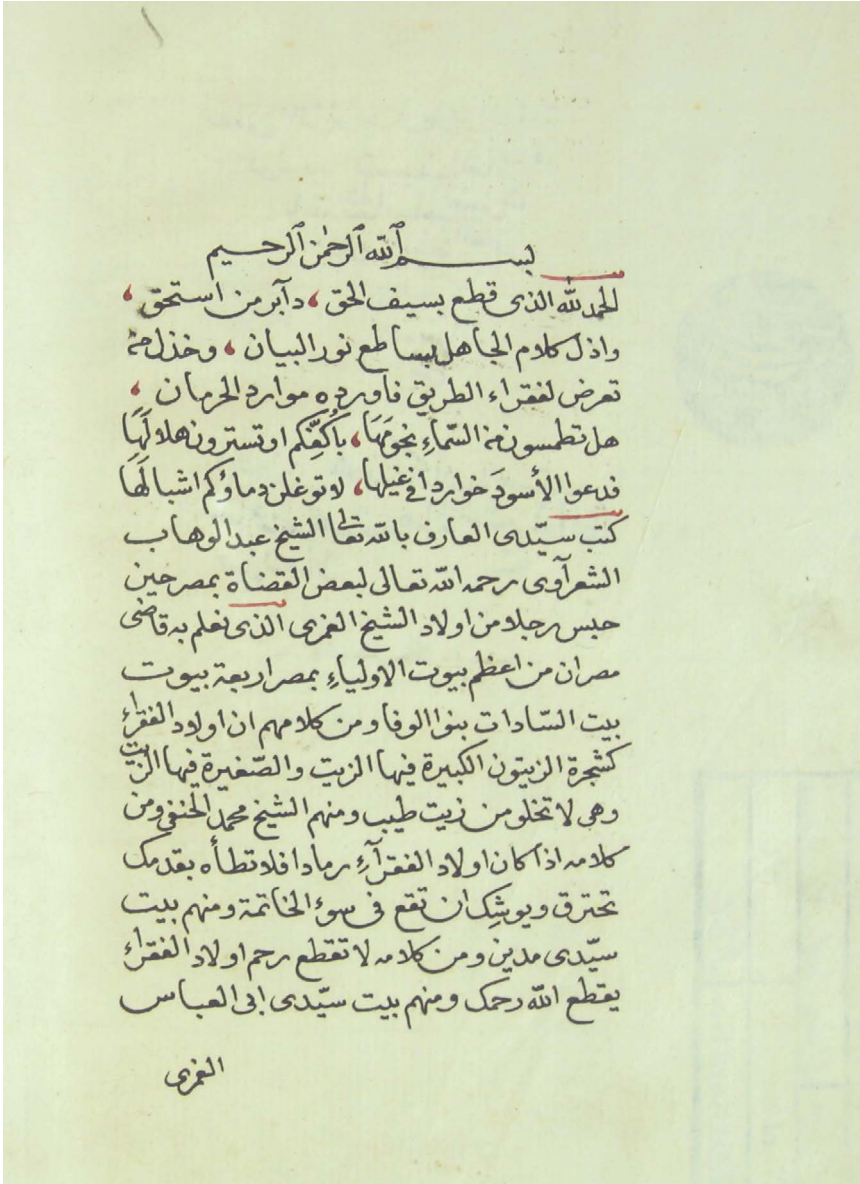 بسم الله الرحمن الرحيم
الحمد لله الذى قطع بسيف الحق، دآبر من استحق،
واذل كلام الجاهل بساطع نور البيان، وخذل من
تعرض لفقراء الطريق فاورده موارد الحرمان،
هل تطمسون من السّماءِ نجومَهَا، باكُفِّكم او تسترون هلالَهَا
فدعوا الأسودَ خوادرا فى غيلها، لا توغلن دماؤكم اشبالَهَا
كتب سيّدى العارف بالله تعالى الشيخ عبد الوهاب
الشعرآوى رحمه الله تعالى لبعض القضاة بمصر حين
حبس رجلا من اولاد الشيخ الغمرى الذى نعلم به قاضى
مصر ان من اعظم بيوت الاولياءِ بمصر اربعة بيوت
بيت السّادات بنوا الوفا ومن كلامهم ان اولاد الفقراءِ
كشجرة الزيتون الكبيرة فيها الزيت والصّغيرة فيها الزيت
وهى لا تخلو من زيت طيب ومنهم الشيخ محمد الحنفى ومن
كلامه اذا كان اولاد الفقرآءِ رمادا فلا تطأه بقدمك
تحترق ويوشِك ان تقع فى سوء الخاتمة ومنهم بيت
سيّدى مدين ومن كلامه لا تقطع رحم اولاد الفقراءِ
يقطع الله رحمك ومنهم بيت سيّدى ابى العباس
الغمرى